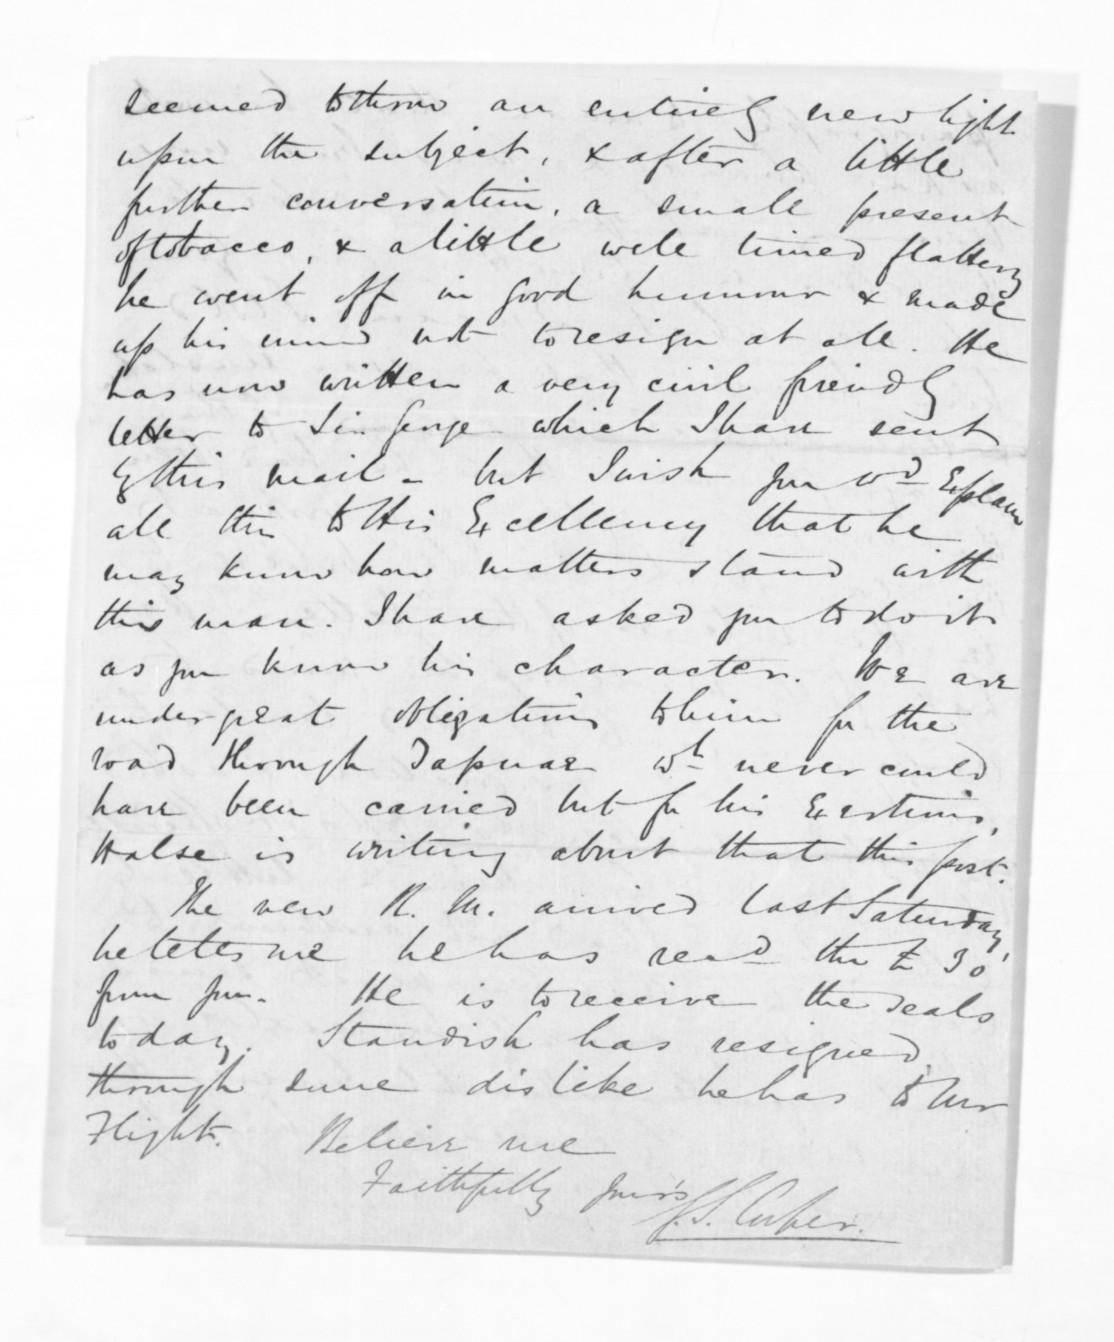 seemed to throw an entirely new light
upon the subject, & after a little
further conversation, a small present
of tobacco, & a little well timed flattery
he went off in good humour & made
up his mind not to resign at all. He
has now written a very civil friendly
letter to Sir George which I have sent
by this mail - but I wish you wd Explain
all this to His Excellency that he
may know how matters stand with
this man. I have asked you to do it
as you know his character. We are
under great obligations to him for the
road through Tapuae wh never could
have been carried but for his Exertions,
Halse is writing about that this post.
The new R. M. arrived last Saturday,
he tells me he has recd the £ 30
from you. He is to receive the seals
today. Standish has resigned
through some dislike he has to Mr
Flight. Believe me
Faithfully yours
G. S. Cooper.